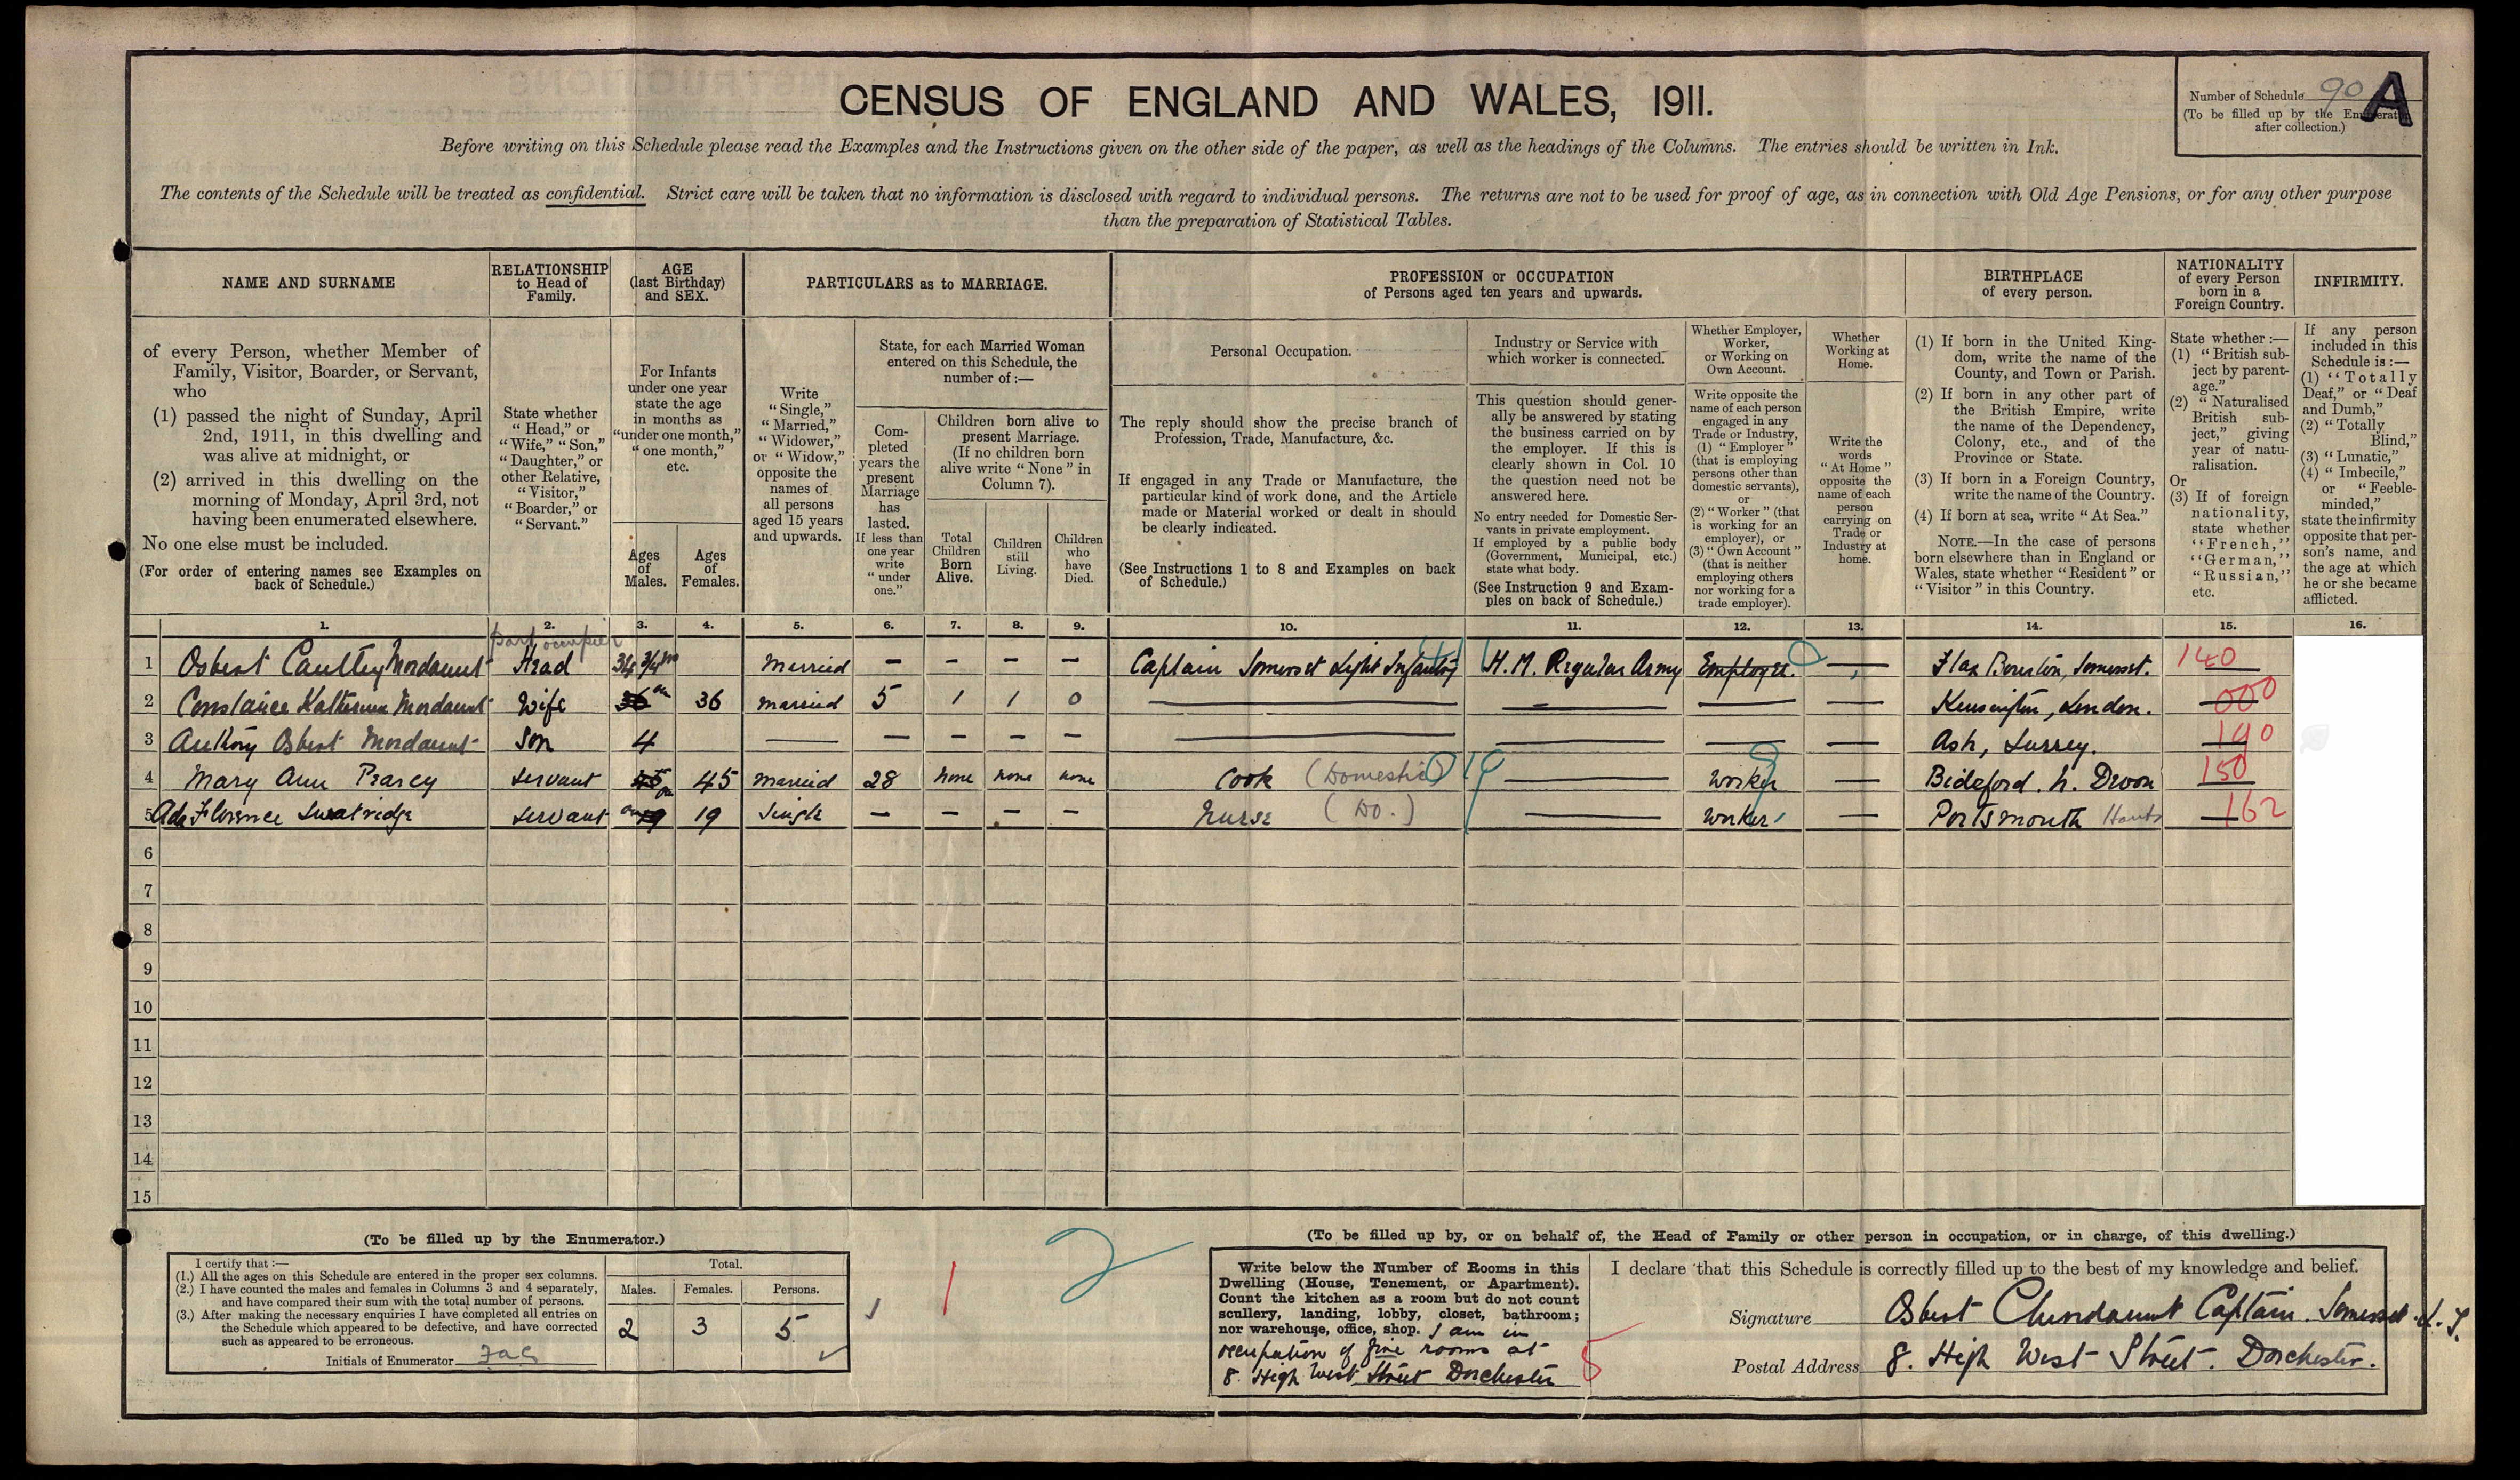 CENSUS OF ENGLAND AND WALES, 1911.
Number of Schedule 90 A
(To be filled up by the Enumerator
after collection.)
Before writing on this Schedule please read the Examples and the Instructions given on the other side of the paper, as well as the headings of the Columns. The entries should be written in Ink.
The contents of the Schedule will be treated as confidential. Strict care will be taken that no information is disclosed with regard to individual persons. The returns are not to be used for proof of age, as in connection with Old Age Pensions, or for any other purpose
than the preparation of Statistical Tables.
NAME AND SURNAME
of every Person, whether Member of
Family, Visitor, Boarder, or Servant,
who
(1) passed the night of Sunday, April
2nd, 1911, in this dwelling and
was alive at midnight, or
(2) arrived in this dwelling on the
morning of Monday, April 3rd, not
having been enumerated elsewhere.
No one else must be included.
(For order of entering names see Examples on
back of Schedule.)
RELATIONSHIP
to Head of
Family.
State whether
"Head," or
"Wife," "Son,"
"Daughter," or
other Relative,
"Visitor,"
"Boarder," or
"Servant."
AGE
(last Birthday)
and SEX.
For Infants
under one year
state the age
in months as
"under one month,"
"one month,"
etc.
Ages
of
Males.
Ages
of
Females.
PARTICULARS as to MARRIAGE.
Write
"Single,"
"Married,"
"Widower,"
or "Widow,"
opposite the
names of
all persons
aged 15 years
and upwards.
State, for each Married Woman
entered on this Schedule, the
number of:—
Com-
pleted
years the
present
Marriage
has
lasted.
If less than
one year
write
"under
one."
Children born alive to
present Marriage.
(If no children born
alive write "None" in
Column 7).
Total
Children
Born
Alive.
Children
still
Living.
Children
who
have
Died.
PROFESSION or OCCUPATION
of Persons aged ten years and upwards.
Personal Occupation.
The reply should show the precise branch of
Profession, Trade, Manufacture, &c.
If engaged in any Trade or Manufacture, the
particular kind of work done, and the Article
made or Material worked or dealt in should
be clearly indicated.
(See Instructions 1 to 8 and Examples on back
of Schedule.)
Industry or Service with
which worker is connected.
This question should gener-
ally be answered by stating
the business carried on by
the employer. If this is
clearly shown in Col. 10
the question need not be
answered here.
No entry needed for Domestic Ser-
vants in private employment.
If employed by a public body
(Government, Municipal, etc.)
state what body.
(See Instruction 9 and Exam-
ples on back of Schedule.)
Whether Employer,
Worker,
or Working on
Own Account.
Write opposite the
name of each person
engaged in any
Trade or Industry,
(1) "Employer"
(that is employing
persons other than
domestic servants),
or
(2) "Worker" (that
is working for an
employer), or
(3) "Own Account"
(that is neither
employing others
nor working for a
trade employer).
Whether
Working at
Home.
Write the
words
"At Home"
opposite the
name of each
person
carrying on
Trade or
Industry at
home.
BIRTHPLACE
of every person.
(1) If born in the United King-
dom, write the name of the
County, and Town or Parish.
(2) If born in any other part of
the British Empire, write
the name of the Dependency,
Colony, etc., and of the
Province or State.
(3) If born in a Foreign Country,
write the name of the Country.
(4) If born at sea, write "At Sea."
NOTE.—In the case of persons
born elsewhere than in England or
Wales, state whether "Resident" or
"Visitor" in this Country.
NATIONALITY
of every Person
born in a
Foreign Country.
State whether:—
(1) "British sub-
ject by parent-
age."
(2) "Naturalised
British sub-
ject," giving
year of natu-
ralisation.
Or
(3) If of foreign
nationality,
state whether
"French,"
"German,"
"Russian,"
etc.
INFIRMITY.
If any person
included in this
Schedule is:—
(1) "Totally
Deaf," or "Deaf
and Dumb,"
(2) "Totally
Blind,"
(3) "Lunatic,"
(4) "Imbecile,"
or "Feeble-
minded,"
state the infirmity
opposite that per-
son's name, and
the age at which
he or she became
afflicted.
1. 2. 3. 4. 5. 6. 7. 8. 9. 10. 11. 12. 13. 14. 15. 16.
part occupier
1 Osbert Cautley Mordaunt Head 34 3/4 Married — — — — Captain Somerset Light Infantry H.M. Regular Army Employer. — Flax Bourton, Somerset. 140
2 Constance Katherine Mordaunt Wife 36 36 Married 5 1 1 0 — — — — Kensington, London. 000
3 Anthony Osbert Mordaunt Son 4 — — — — — — — — — Ash, Surrey. 190
4 Mary Ann Pearcy Servant 45 45 Married 28 None none none Cook (Domestic) — Worker — Bideford. N. Devon 150
5 Ada Florence Swatridge Servant 19 19 Single — — — — Nurse (Do.) — Worker — Portsmouth Hants 162
6
7
8
9
10
11
12
13
14
15
(To be filled up by the Enumerator.)
I certify that:—
(1.) All the ages on this Schedule are entered in the proper sex columns.
(2.) I have counted the males and females in Columns 3 and 4 separately,
and have compared their sum with the total number of persons.
(3.) After making the necessary enquiries I have completed all entries on
the Schedule which appeared to be defective, and have corrected
such as appeared to be erroneous.
Initials of Enumerator
Total.
Males. Females. Persons.
2 3 5
1 2
(To be filled up by, or on behalf of, the Head of Family or other person in occupation, or in charge, of this dwelling.)
Write below the Number of Rooms in this
Dwelling (House, Tenement, or Apartment).
Count the kitchen as a room but do not count
scullery, landing, lobby, closet, bathroom;
nor warehouse, office, shop. I am in
occupation of five rooms at
8. High West Street Dorchester
5
I declare that this Schedule is correctly filled up to the best of my knowledge and belief.
Signature Osbert C Mordaunt Captain. Somerset. L. I.
Postal Address 8. High West Street. Dorchester.